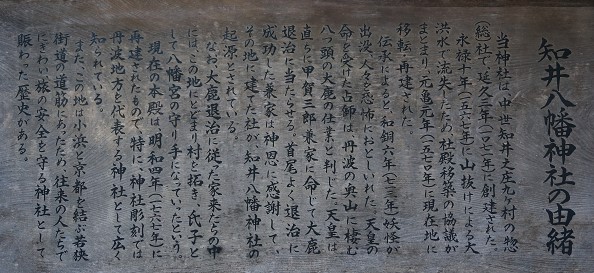 知井八幡神社の由緒
当神社は、中世知井之庄九ヶ村の惣
(総)社で、延久三年(一〇七一年)に創建された。
永禄十年(一五六七年)山抜けによる大
洪水で流失したため、社殿移築の協議が
まとまり、元亀元年(一五七〇年)に現在地に
移転、再建された。
伝承によると、和銅六年(七一三年)妖怪が
出没、人々を恐怖におとしいれた。天皇の
命を受けた占師は、丹波の奥山に棲む
八つ頭の大鹿の仕業と判じた。天皇は
直ちに甲賀三郎兼家に命じて大鹿
退治に当たらせる。首尾よく退治に
成功した兼家は神恩に感謝して、
その地に建てた社が知井八幡神社の
起源とされている。
なお、大鹿退治に従った家来たちの中
には、この地にとどまり村を拓き、氏子と
して八幡宮の守り手になっていったという。
現在の本殿は明和四年(一七六七年)に
再建されたもので、特に、神社彫刻では
丹波地方を代表する神社として広く
知られている。
また、この地は小浜と京都を結ぶ若狭
街道の道筋にあったため、往来の人たちで
にぎわい旅の安全を守る神社として
賑わった歴史がある。